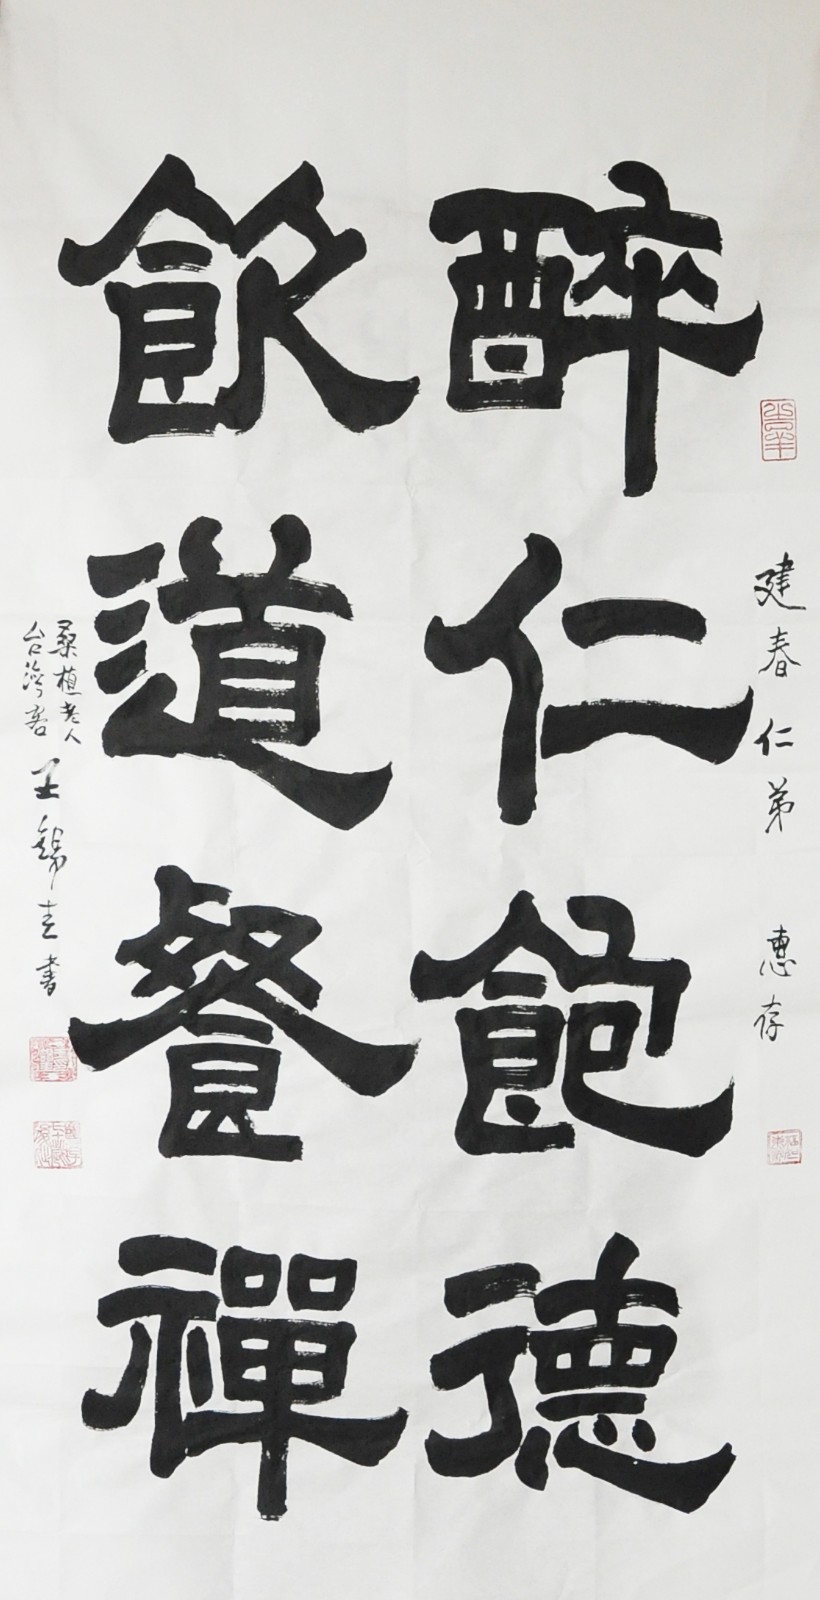 醉仁飽德
飲道餐禪
建春仁弟 惠存
桑植老人
台灣客
王錫圭書